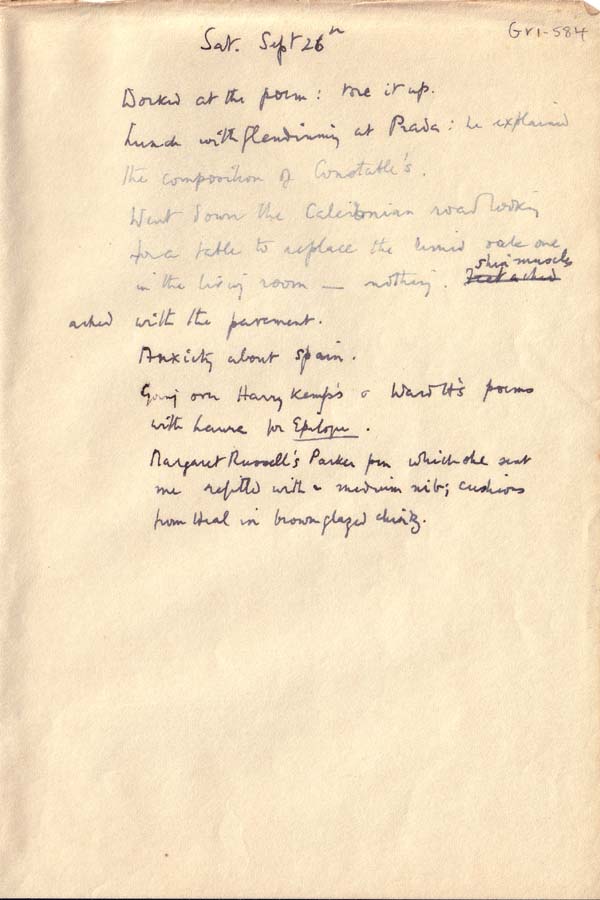 GV1-584
Sat. Sept 26th
Worked at the poem: tore it up.
Lunch with Glendinning at Prada: he explained
the composition of Constable's.
Went down the Caledonian road looking
for a table to replace the limed oak one
in the living room — nothing. Feet ached shin muscles
ached with the pavement.
Anxiety about Spain.
Going over Harry Kemp's & Ward H's poems
with Laura for Epilogue.
Margaret Russell's Parker pen which she sent
me refitted with a medium nib; cushions
from Heal in brown glazed chintz.